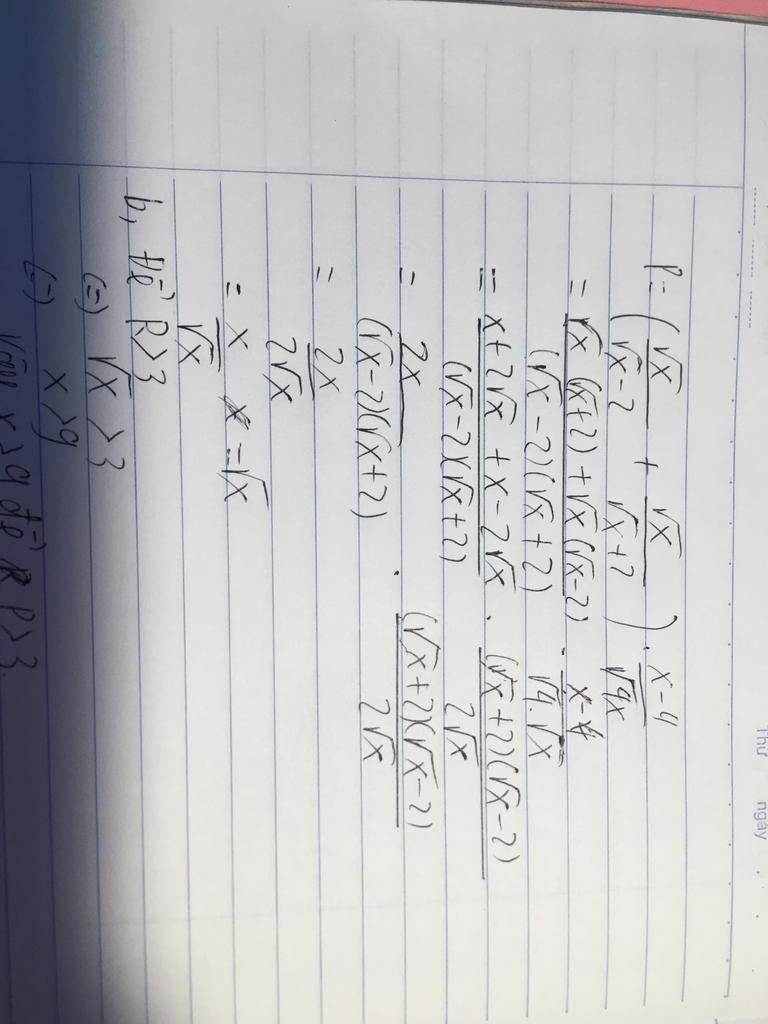 Thứ ngày
P = (√x/(√x-2) + √x/(√x+2)) . (x-4)/√4x
= (√x (√x+2) + √x(√x-2))/((√x-2)(√x+2)) . (x-4)/(√4.√x)
= (x+2√x + x-2√x)/((√x-2)(√x+2)) . ((√x+2)(√x-2))/(2√x)
= 2x/((√x-2)(√x+2)) . ((√x+2)(√x-2))/(2√x)
= 2x/(2√x)
= x/√x = √x
b, Để P>3
(=) √x >3
(=) x >9
Vậy x >9 để P>3.